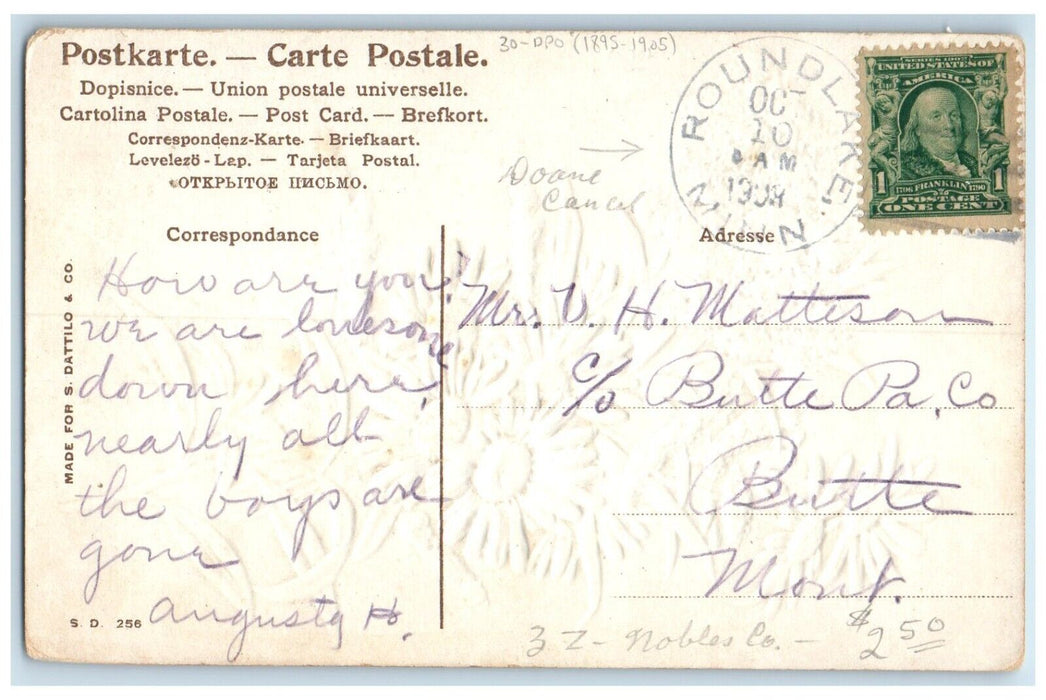 Postkarte. — Carte Postale.
Dopisnice. — Union postale universelle.
Cartolina Postale. — Post Card. — Brefkort.
Correspondenz-Karte. — Briefkaart.
Levelezö-Lap. — Tarjeta Postal.
ОТКРЫТОЕ ПИСЬМО.
30-DPO (1895-1905)
Doane
Cancel
ROUND LAKE,
MINN
OCT
10
AM
SERIES 1902
UNITED STATES OF
AMERICA
1706 FRANKLIN 1790
1 POSTAGE 1
ONE CENT
Correspondance
Adresse
MADE FOR S. DATTILO & CO.
How are you?
we are lonesome
down here,
nearly all
the boys are
gone
Augusta H.
S. D. 256
Mr. V. H. Matteson
c/o Butte Pa. Co
Butte
Mont.
3 Z - Nobles Co. - $2.50